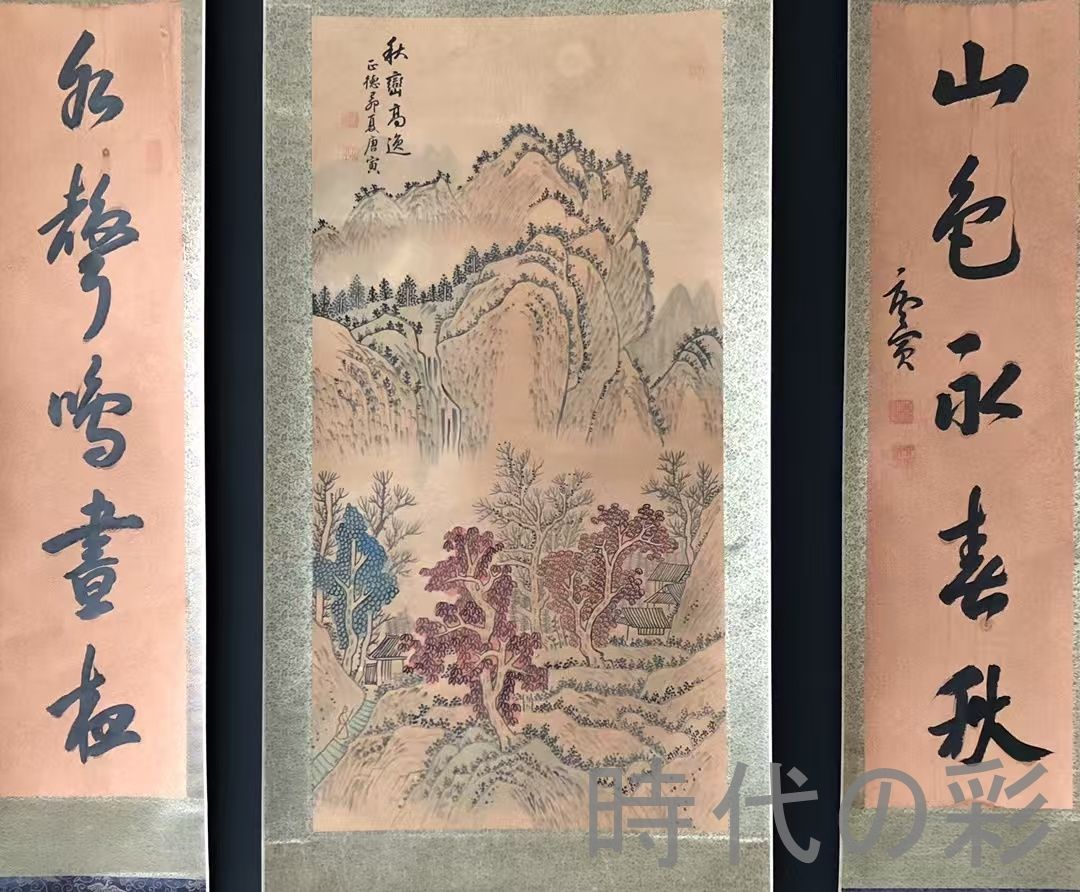 山色永春秋
唐寅
秋巒高逸
正德卯夏唐寅
水聲鳴晝夜
時代の彩